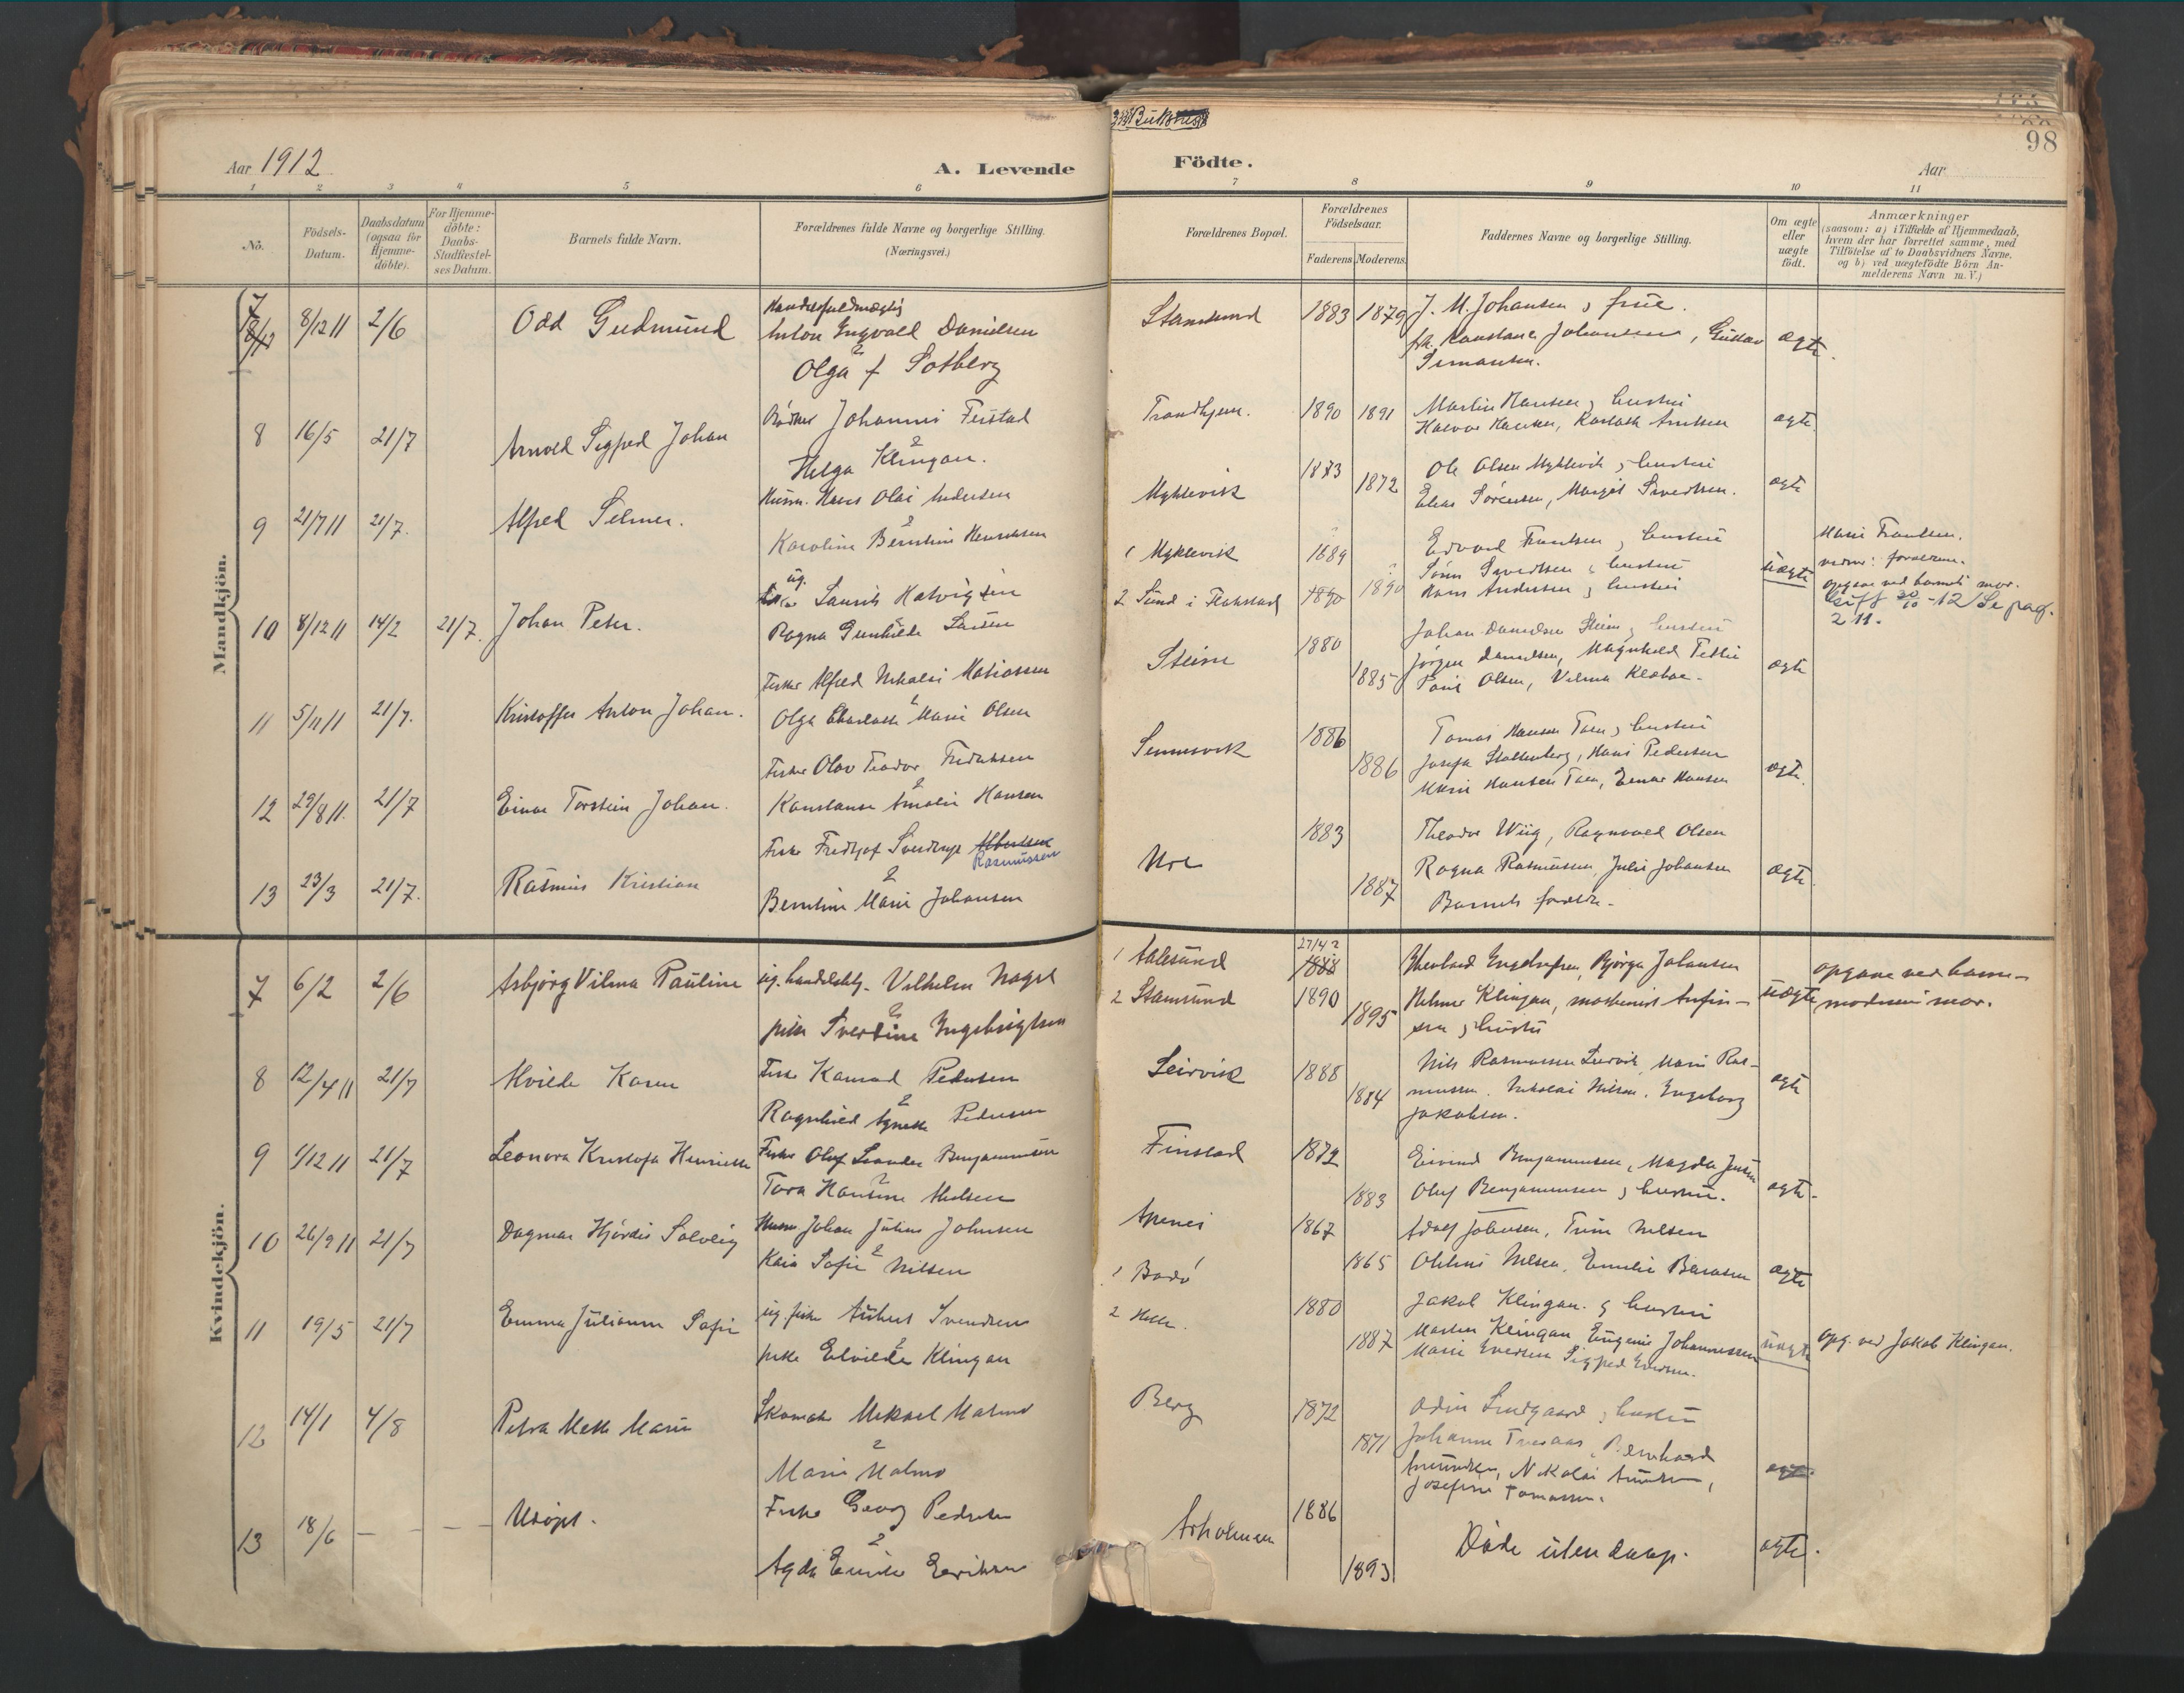 98
Aar 1912
A. Levende
Födte.
Aar
1 2 3 4 5 6 7 8 9 10 11
No.
Födsels-
Datum.
Daabsdatum
(ogsaa for
Hjemme-
döbte).
For Hjemme-
döbte:
Daabs-
Stadfæstel-
ses Datum.
Barnets fulde Navn.
Forældrenes fulde Navne og borgerlige Stilling.
(Næringsvei.)
Forældrenes Bopæl.
Forældrenes
Födselsaar.
Faderens Moderens
Faddernes Navne og borgerlige Stilling.
Om ægte
eller
uægte
födt.
Anmærkninger
(saasom: a) i Tilfælde af Hjemmedaab,
hvem der har forrettet samme, med
Tilföielse af to Daabsvidners Navne.
og b) ved uægtefödte Börn An-
melderens Navn m. V.)
Mandkjön.
7 8/12 11 2/6 Odd Gudmund
Handelsfuldmægtig
Anton Ingvald Danielsen
Olga f Solberg
Stamsund 1883 1879
J. M. Johansen & frue.
frk. Konstance Johansen, Gustav
Simonsen.
ægte.
8 16/5 21/7 Arnold Sigfred Johan
Johannes Feistad
&
Helga Klingan.
Trondhjem. 1890 1891
Martin Hansen & hustru
ægte.
9 21/7 11 21/7. Alfred Selmer.
Hans Olai Andersen
&
Karoline Berntine Henriksen
Myklevik 1873 1872
Ole Olsen Myklevik & hustru
Elias Sørensen, Margit Sivertsen.
ægte
10 8/12 11 14/2 21/7. Johan Peter.
ug.
Laurits Hatvigsen
Ragna Gunhilde Larsen
1 Myklevik 1889
2 Sund i Flakstad 1890 1890
Edvard Frantsen & hustru
Sivertsen & hustru
Hans Andersen & hustru
uægte
Marie Frantsen.
vidner: forældrene.
Opgave ved barnets mor.
Gift 20/10 -12 / Se pag.
211.
11 5/11 11 21/7. Kristoffer Anton Johan.
Fisker Alfred Nikolai Matiassen
&
Olga Charlotte Marie Olsen
Steine 1880 1885
Johan Danielsen Steine & hustru
Jørgen Danielsen, Magnhild
Paul Olsen, Vilma
ægte
12 29/8 11. 21/7 Einar Torstein Johan.
Fisker Olav Teodor Fredriksen
&
Konstanse Amalie Hansen
Sennesvik 1886 1886
Tomas Hansen & hustru
Josefa Stoltenberg, Hans Pedersen
Marie Hansen, Einar Hansen
ægte.
13 23/3 21/7. Rasmus Kristian
Fisker Fredtjof Sverdrup Albertsen
Rasmussen
&
Berntine Marie Johansen
Ure 1883 1887
Theodor Wiig, Ragnvald Olsen
Ragna Rasmussen, Julie Johansen
Barnets forældre.
ægte
Kvindekjön.
7 6/2 2/6 Asbjørg Vilma Pauline
ug. handelsbtj. Vilhelm Nagel
&
pike Sverdine Ingebrigtsen
1 Aalesund 27/4 2 1888
2 Stamsund 1890 1895
Bjørga Johansen
Helmer Klingan, maskinist Anfin-
sen & hustru
uægte
opgave ved barne-
moderens mor.
8 12/4 11 21/7 Alvilde Karen
Fisker Konrad Pedersen
&
Ragnhild Agnete Pedersen
Leirvik 1888 1884
Nils Rasmussen Leirvik, Marie Ras-
mussen, Nikolai Nilsen, Ingeborg
Jakobsen.
ægte
9 1/12 11 21/7 Leonora Kristofa Henriette
Fisker Oluf Leander Benjaminsen
&
Tora Hansine
Finstad 1872 1883
Eivind Benjaminsen, Magda Jensen
Oluf Benjaminsen & hustru.
ægte.
10 26/9 11 21/7 Dagmar Hjördis Solveig
Johan Julius Johnsen
&
Kaia Sofie Nilsen
1867 1865
Adolf Johnsen, Trine Nilsen
Nilsen, Emilie
ægte
11 19/5 21/7 Emma Julianne Sofie
ug. fisker Svendsen
&
pike Elvilde Klingan
1 Bodö
2 Holle. 1880 1887
Jakob Klingan & hustru
Morten Klingan Eugenie Johannessen
Marie Evensen Sigfred Evensen.
uægte
Opg. ved Jakob Klingan.
12 14/1 4/8 Petra Mette Marie
Skomaker Mikael Malmo
&
Marie Malmo
Berg 1872 1871
Odin Lindgaard & hustru
Johanne, Bernhard
Amundsen, Nikolai Amundsen,
Josefine Tomassen.
ægte
13 18/6 — — — Udöpt.
Fisker Georg Pedersen
&
Agda Emilie Eeriksen
Arholmen 1886 1893
Döde uten daap.
ægte.